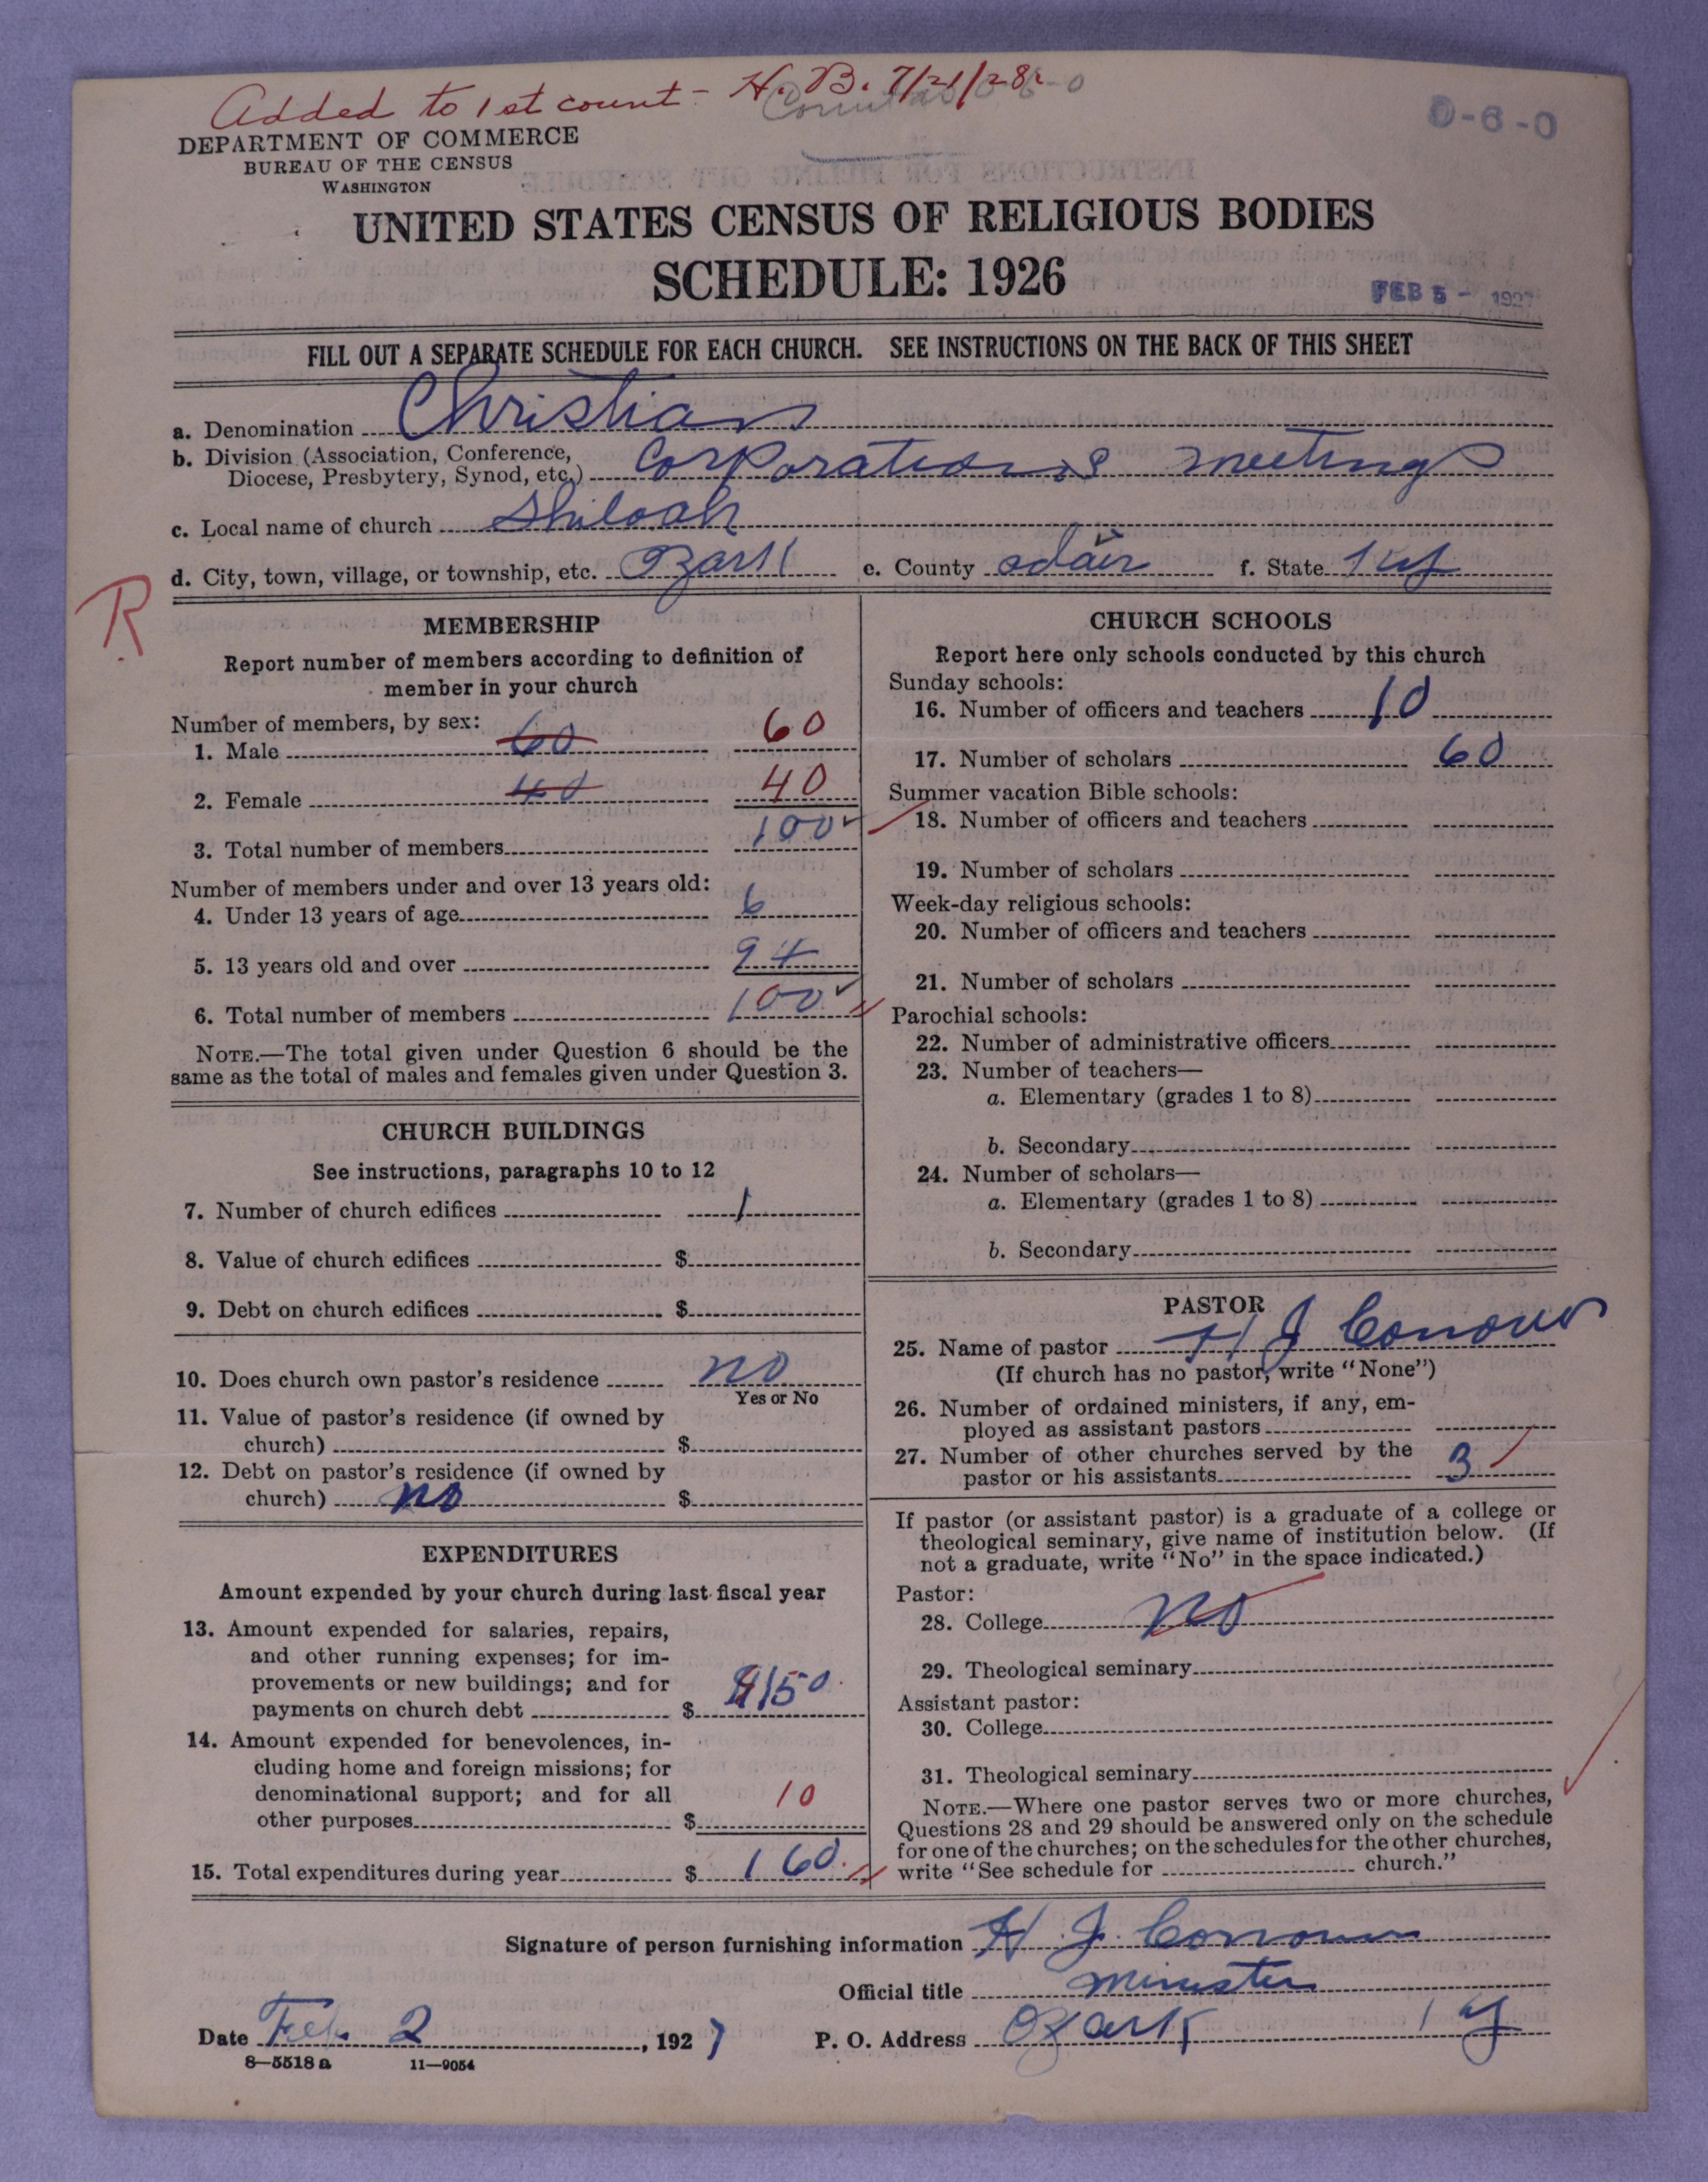 Added to 1st count - H. B. 7/21/28
0-6-0
DEPARTMENT OF COMMERCE
BUREAU OF THE CENSUS
WASHINGTON
UNITED STATES CENSUS OF RELIGIOUS BODIES
SCHEDULE: 1926
FEB 5 - 1927
FILL OUT A SEPARATE SCHEDULE FOR EACH CHURCH. SEE INSTRUCTIONS ON THE BACK OF THIS SHEET
a. Denomination Christian
b. Division (Association, Conference,
Diocese, Presbytery, Synod, etc.) Corporations meetings
c. Local name of church Shiloah
d. City, town, village, or township, etc. Ozark e. County adair f. State Ky
R
MEMBERSHIP
Report number of members according to definition of
member in your church
Number of members, by sex:
1. Male 60 60
2. Female 40 40
3. Total number of members 100
Number of members under and over 13 years old:
4. Under 13 years of age 6
5. 13 years old and over 94
6. Total number of members 100
NOTE.—The total given under Question 6 should be the
same as the total of males and females given under Question 3.
CHURCH BUILDINGS
See instructions, paragraphs 10 to 12
7. Number of church edifices 1
8. Value of church edifices $
9. Debt on church edifices $
10. Does church own pastor's residence no
Yes or No
11. Value of pastor's residence (if owned by
church) $
12. Debt on pastor's residence (if owned by
church) no $
EXPENDITURES
Amount expended by your church during last fiscal year
13. Amount expended for salaries, repairs,
and other running expenses; for im-
provements or new buildings; and for
payments on church debt $ $150
14. Amount expended for benevolences, in-
cluding home and foreign missions; for
denominational support; and for all
other purposes $ 10
15. Total expenditures during year $ 160
CHURCH SCHOOLS
Report here only schools conducted by this church
Sunday schools:
16. Number of officers and teachers 10
17. Number of scholars 60
Summer vacation Bible schools:
18. Number of officers and teachers
19. Number of scholars
Week-day religious schools:
20. Number of officers and teachers
21. Number of scholars
Parochial schools:
22. Number of administrative officers
23. Number of teachers—
a. Elementary (grades 1 to 8)
b. Secondary
24. Number of scholars—
a. Elementary (grades 1 to 8)
b. Secondary
PASTOR
25. Name of pastor H J Conover
(If church has no pastor, write "None")
26. Number of ordained ministers, if any, em-
ployed as assistant pastors
27. Number of other churches served by the
pastor or his assistants 3
If pastor (or assistant pastor) is a graduate of a college or
theological seminary, give name of institution below. (If
not a graduate, write "No" in the space indicated.)
Pastor:
28. College no
29. Theological seminary
Assistant pastor:
30. College
31. Theological seminary
NOTE.—Where one pastor serves two or more churches,
Questions 28 and 29 should be answered only on the schedule
for one of the churches; on the schedules for the other churches,
write "See schedule for church."
Signature of person furnishing information H J. Conover
Official title minister
Date Feb. 2, 1927 P. O. Address Ozark Ky
8—5518 a 11—9054